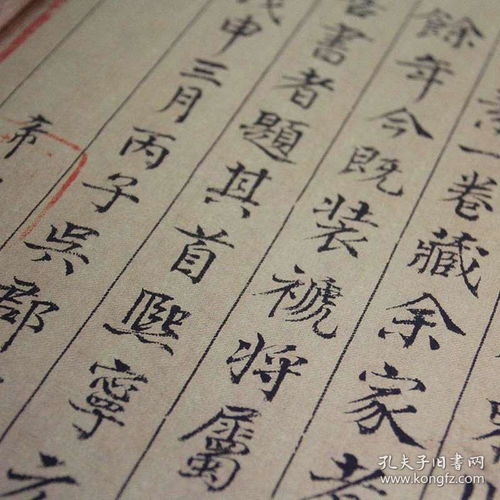 一卷藏余家者
餘年今既装褫将屬
書者題其首熙寧元
戊申三月丙子吳郡
孔夫子旧书网
www.kongfz.com